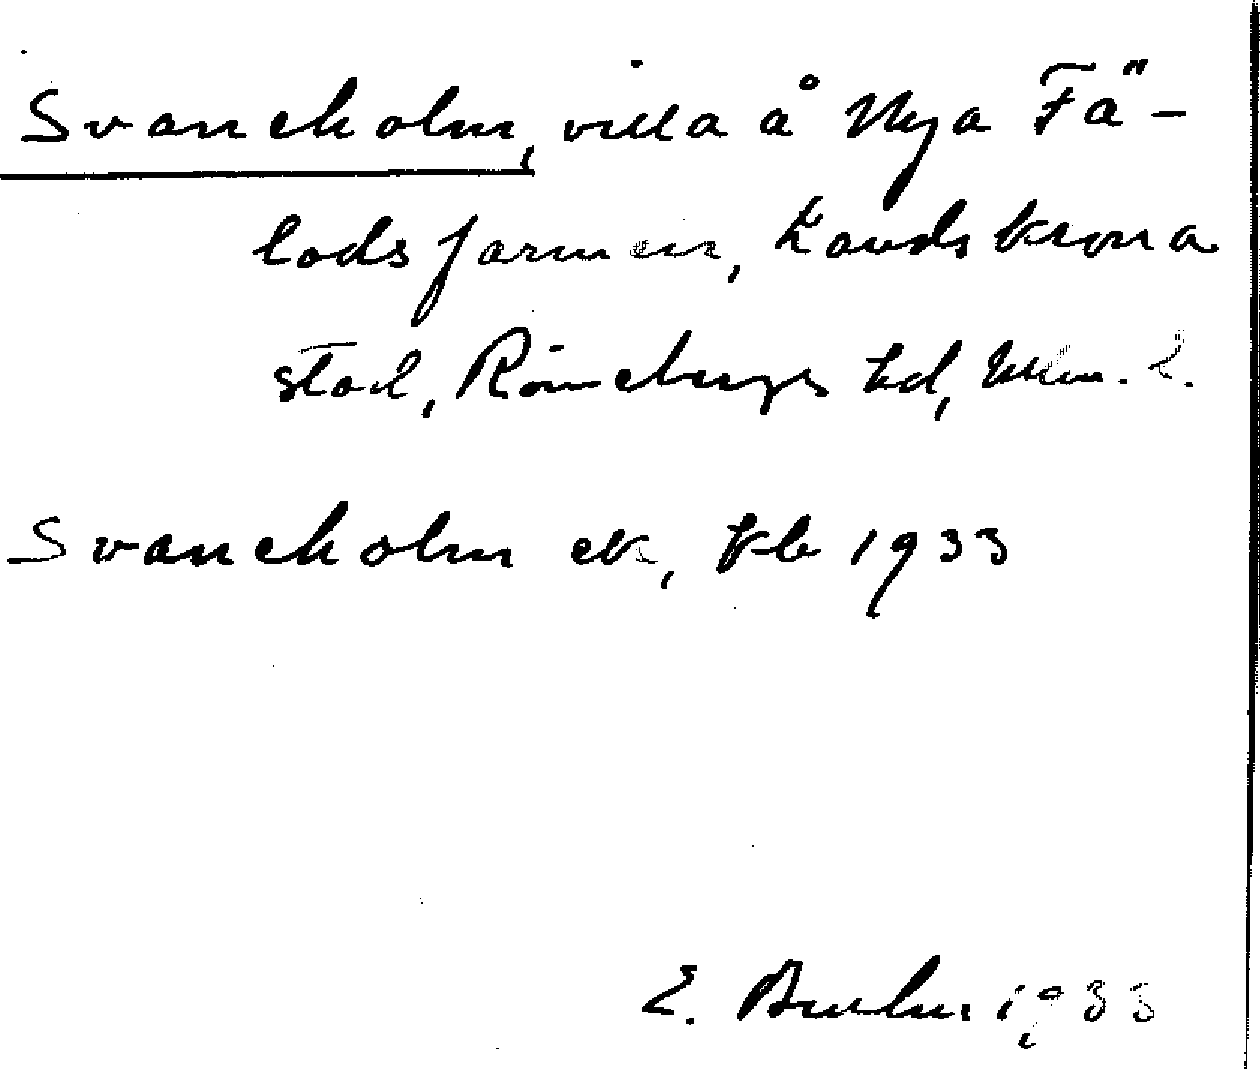 Svaneholm, villa å Nya Fä-
lads farmen, Landskrona
stad, Rönnebergs hd, Mlm. l.
Svaneholm ek, kb 1933
E. 1933